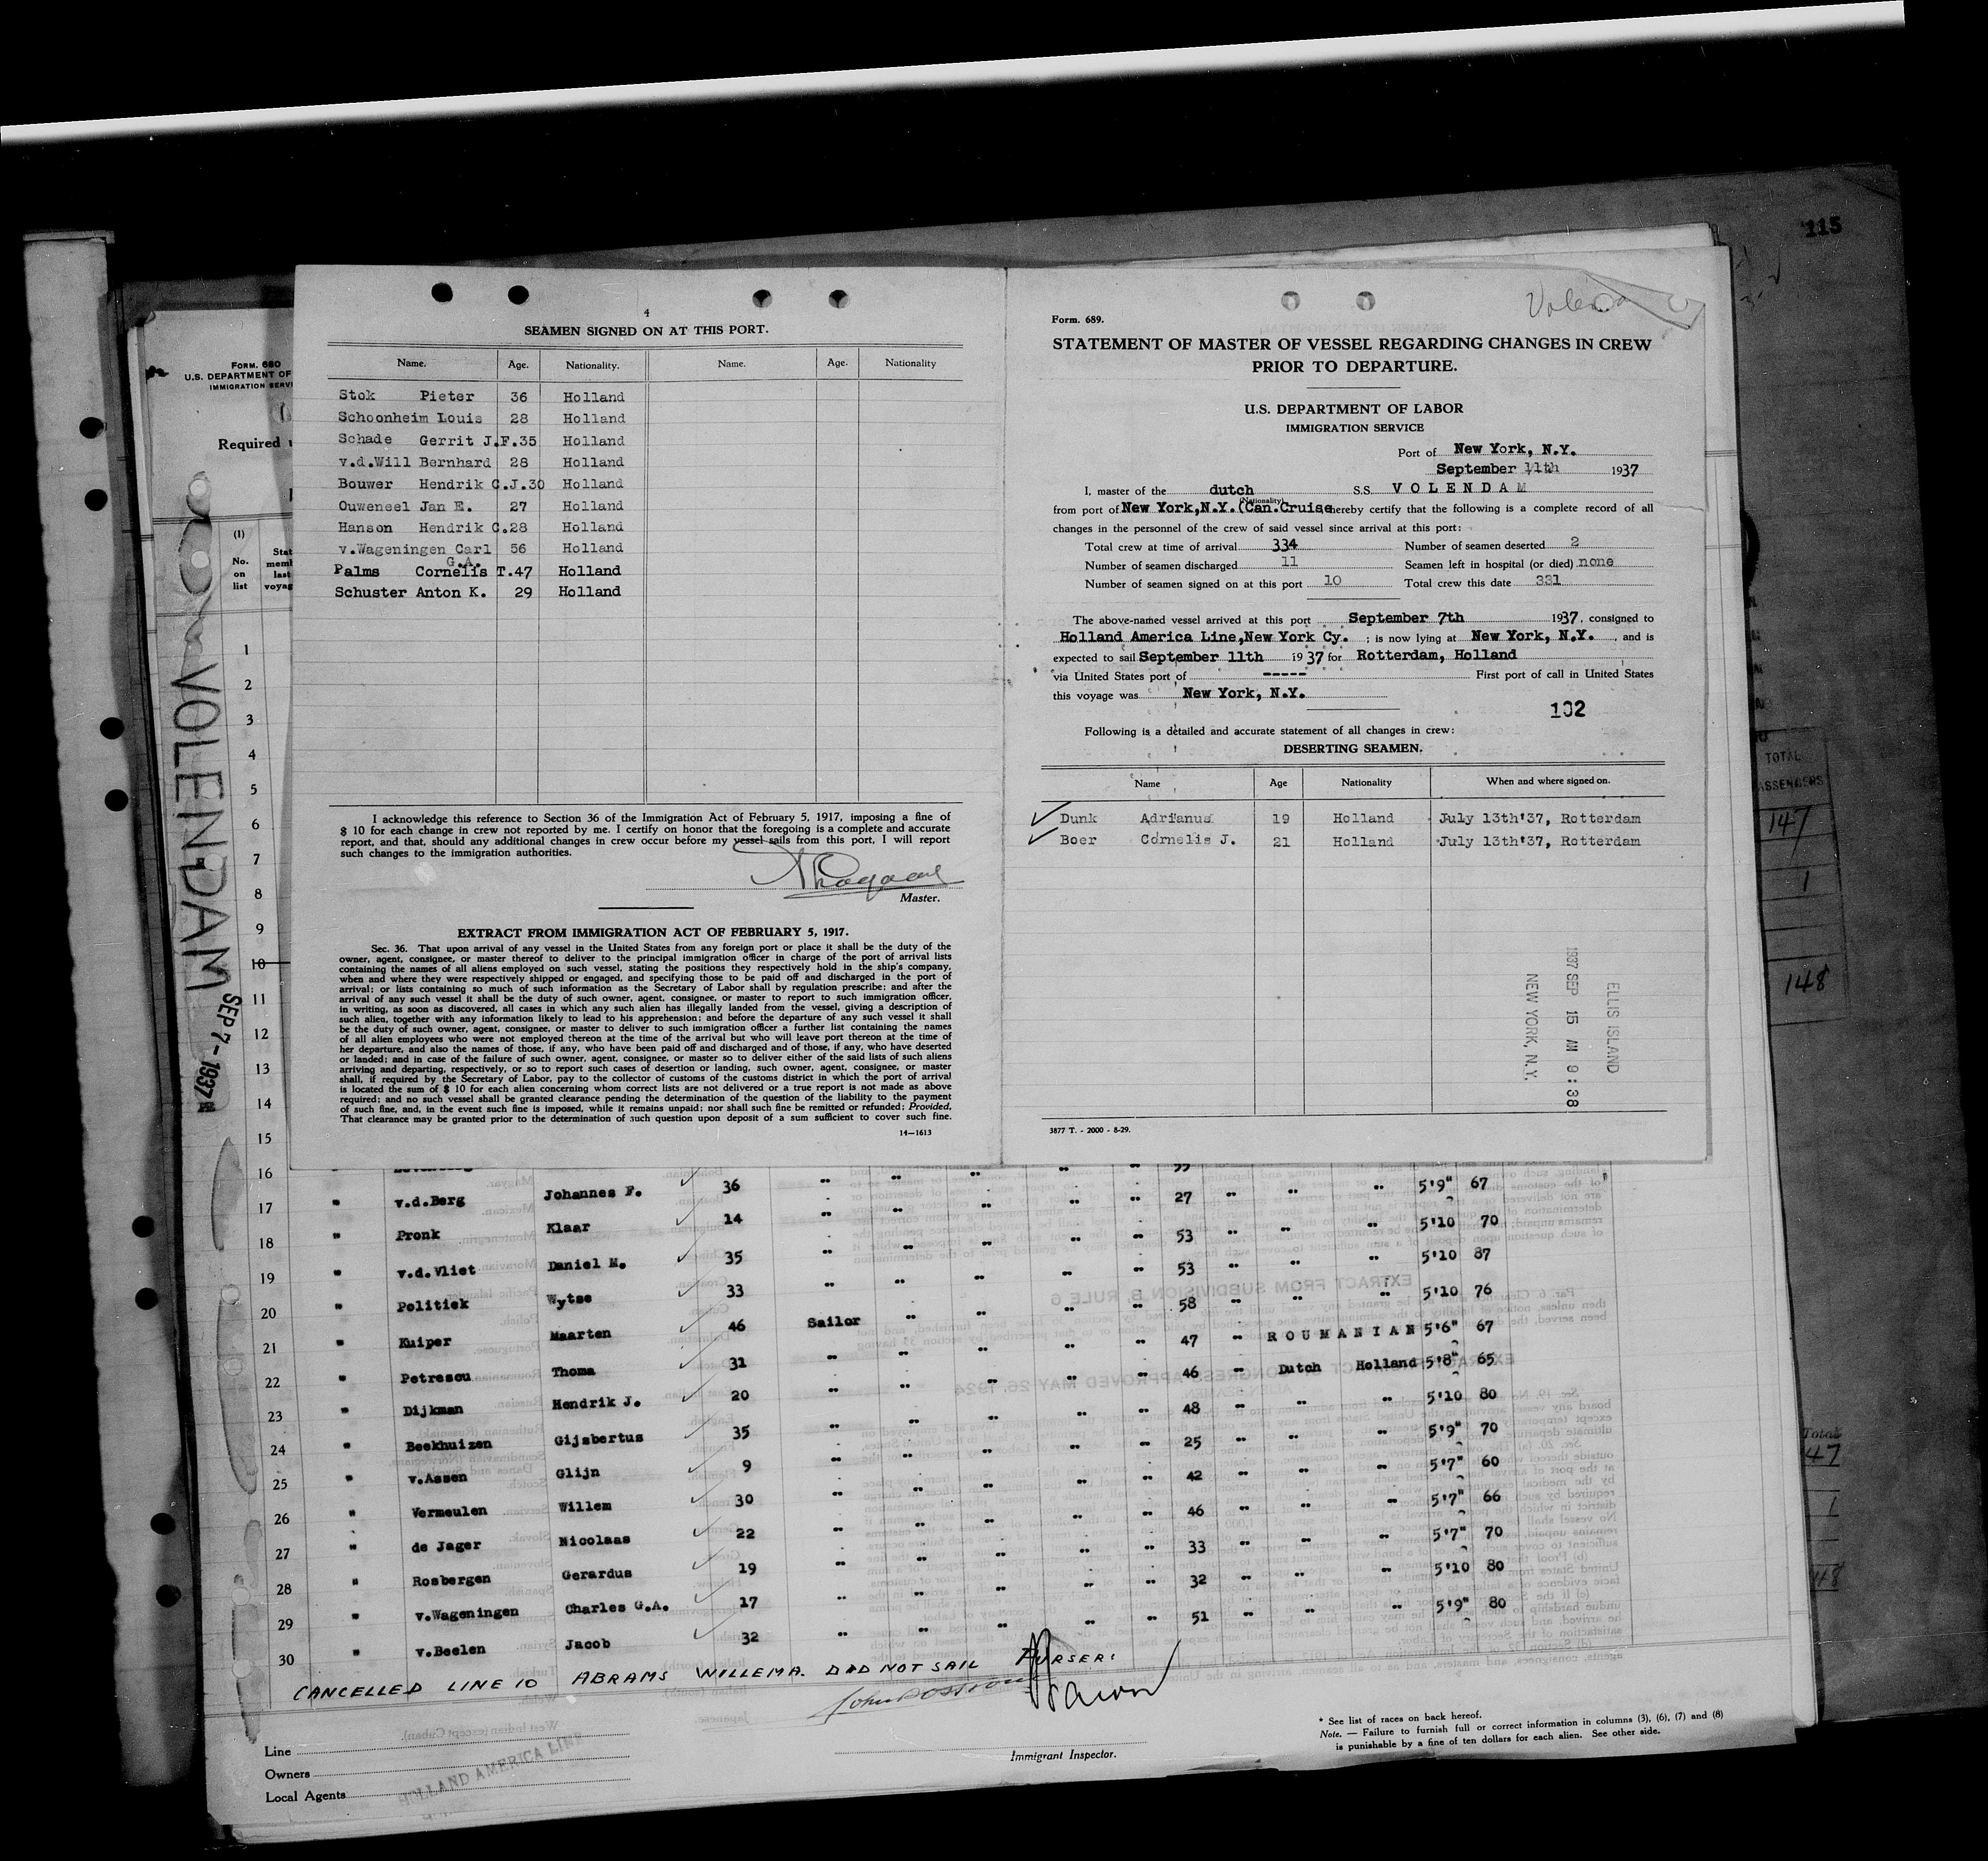 115
4
SEAMEN SIGNED ON AT THIS PORT.
Name. Age. Nationality. Name. Age. Nationality
Stok Pieter 36 Holland
Schoonheim Louis 28 Holland
Schade Gerrit J.F.35 Holland
v.d.Will Bernhard 28 Holland
Bouwer Hendrik C.J.30 Holland
Ouweneel Jan E. 27 Holland
Hanson Hendrik C.28 Holland
v.Wageningen Carl 56 Holland
G.A.
Palms Cornelis T.47 Holland
Schuster Anton K. 29 Holland
I acknowledge this reference to Section 36 of the Immigration Act of February 5, 1917, imposing a fine of
$ 10 for each change in crew not reported by me. I certify on honor that the foregoing is a complete and accurate
report, and that, should any additional changes in crew occur before my vessel sails from this port, I will report
such changes to the immigration authorities.
Master.
EXTRACT FROM IMMIGRATION ACT OF FEBRUARY 5, 1917.
Sec. 36. That upon arrival of any vessel in the United States from any foreign port or place it shall be the duty of the
owner, agent, consignee, or master thereof to deliver to the principal immigration officer in charge of the port of arrival lists
containing the names of all aliens employed on such vessel, stating the positions they respectively hold in the ship's company,
when and where they were respectively shipped or engaged, and specifying those to be paid off and discharged in the port of
arrival; or lists containing so much of such information as the Secretary of Labor shall by regulation prescribe; and after the
arrival of any such vessel it shall be the duty of such owner, agent, consignee, or master to report to such immigration officer,
in writing, as soon as discovered, all cases in which any such alien has illegally landed from the vessel, giving a description of
such alien, together with any information likely to lead to his apprehension; and before the departure of any such vessel it shall
be the duty of such owner, agent, consignee, or master to deliver to such immigration officer a further list containing the names
of all alien employees who were not employed thereon at the time of the arrival but who will leave port thereon at the time of
her departure, and also the names of those, if any, who have been paid off and discharged and of those, if any, who have deserted
or landed; and in case of the failure of such owner, agent, consignee, or master so to deliver either of the said lists of such aliens
arriving and departing, respectively, or so to report such cases of desertion or landing, such owner, agent, consignee, or master
shall, if required by the Secretary of Labor, pay to the collector of customs of the customs district in which the port of arrival
is located the sum of $ 10 for each alien concerning whom correct lists are not delivered or a true report is not made as above
required; and no such vessel shall be granted clearance pending the determination of the question of the liability to the payment
of such fine, and, in the event such fine is imposed, while it remains unpaid; nor shall such fine be remitted or refunded; Provided,
That clearance may be granted prior to the determination of such question upon deposit of a sum sufficient to cover such fine.
14—1613
Form. 689.
STATEMENT OF MASTER OF VESSEL REGARDING CHANGES IN CREW
PRIOR TO DEPARTURE.
U.S. DEPARTMENT OF LABOR
IMMIGRATION SERVICE
Port of New York, N.Y.
September 11th 1937
I, master of the dutch S.S. VOLENDAM
(Nationality)
from port of New York,N.Y.(Can.Cruise hereby certify that the following is a complete record of all
changes in the personnel of the crew of said vessel since arrival at this port:
Total crew at time of arrival 334 Number of seamen deserted 2
Number of seamen discharged 11 Seamen left in hospital (or died) none
Number of seamen signed on at this port 10 Total crew this date 331
The above-named vessel arrived at this port September 7th 1937, consigned to
Holland America Line,New York Cy. ; is now lying at New York, N.Y. , and is
expected to sail September 11th 1937 for Rotterdam, Holland
via United States port of ----- First port of call in United States
this voyage was New York, N.Y.
102
Following is a detailed and accurate statement of all changes in crew:
DESERTING SEAMEN.
Name Age Nationality When and where signed on.
Dunk Adrianus 19 Holland July 13th'37, Rotterdam
Boer Cornelis J. 21 Holland July 13th'37, Rotterdam
ELLIS ISLAND
1937 SEP 15 AM 9:38
NEW YORK, N.Y.
3877 T. - 2000 - 8-29.
FORM. 680
U.S. DEPARTMENT OF
IMMIGRATION SERVI
Required
(1)
No.
on
list
VOLENDAM
SEP 7-1937
1
2
3
4
5
6
7
8
9
10
11
12
13
14
15
16
17 " v.d.Berg Johannes F. 36 27 5'9" 67
18 " Pronk Klaar 14 53 5'10 70
19 " v.d.Vliet Daniel M. 35 53 5'10 87
20 " Politiek Wytse 33 58 5'10 76
21 " Kuiper Maarten 46 Sailor 47 ROUMANIAN 5'6" 67
22 " Petrescu Thoma 31 46 Dutch Holland 5'8" 65
23 " Dijkman Hendrik J. 20 48 5'10 80
24 " Beekhuizen Gijsbertus 35 25 5'9" 70
25 " v.Assen Glijn 9 42 5'7" 60
26 " Vermeulen Willem 30 46 5'7" 66
27 " de Jager Nicolaas 22 33 5'7" 70
28 " Rosbergen Gerardus 19 32 5'10 80
29 " v.Wageningen Charles G.A. 17 51 5'9" 80
30 " v.Beelen Jacob 32
CANCELLED LINE 10 ABRAMS WILLEM A. DID NOT SAIL PURSER:
Line
Owners
Local Agents
HOLLAND AMERICA LINE
Immigrant Inspector.
* See list of races on back hereof.
Note. — Failure to furnish full or correct information in columns (3), (6), (7) and (8)
is punishable by a fine of ten dollars for each alien. See other side.
TOTAL
147
1
148
Total
47
1